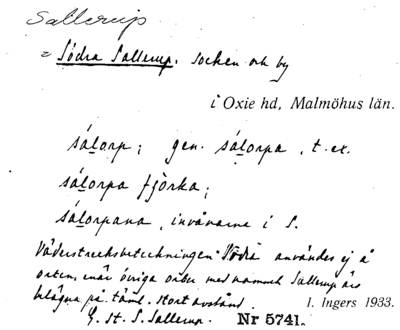 Sallerup
= Södra Sallerup. socken och by
i Oxie hd, Malmöhus län.
sálorp; gen. sálorpa, t.ex.
sálorpa fjörka;
sálorpana, invånarne i S.
Väderstrecksbeteckningen Södra användes ej å
orten, enär övriga orter med namnet Sallerup äro
belägna på täml. stort avstånd.
I. Ingers 1933.
G. st. S. Sallerup. Nr 5741.